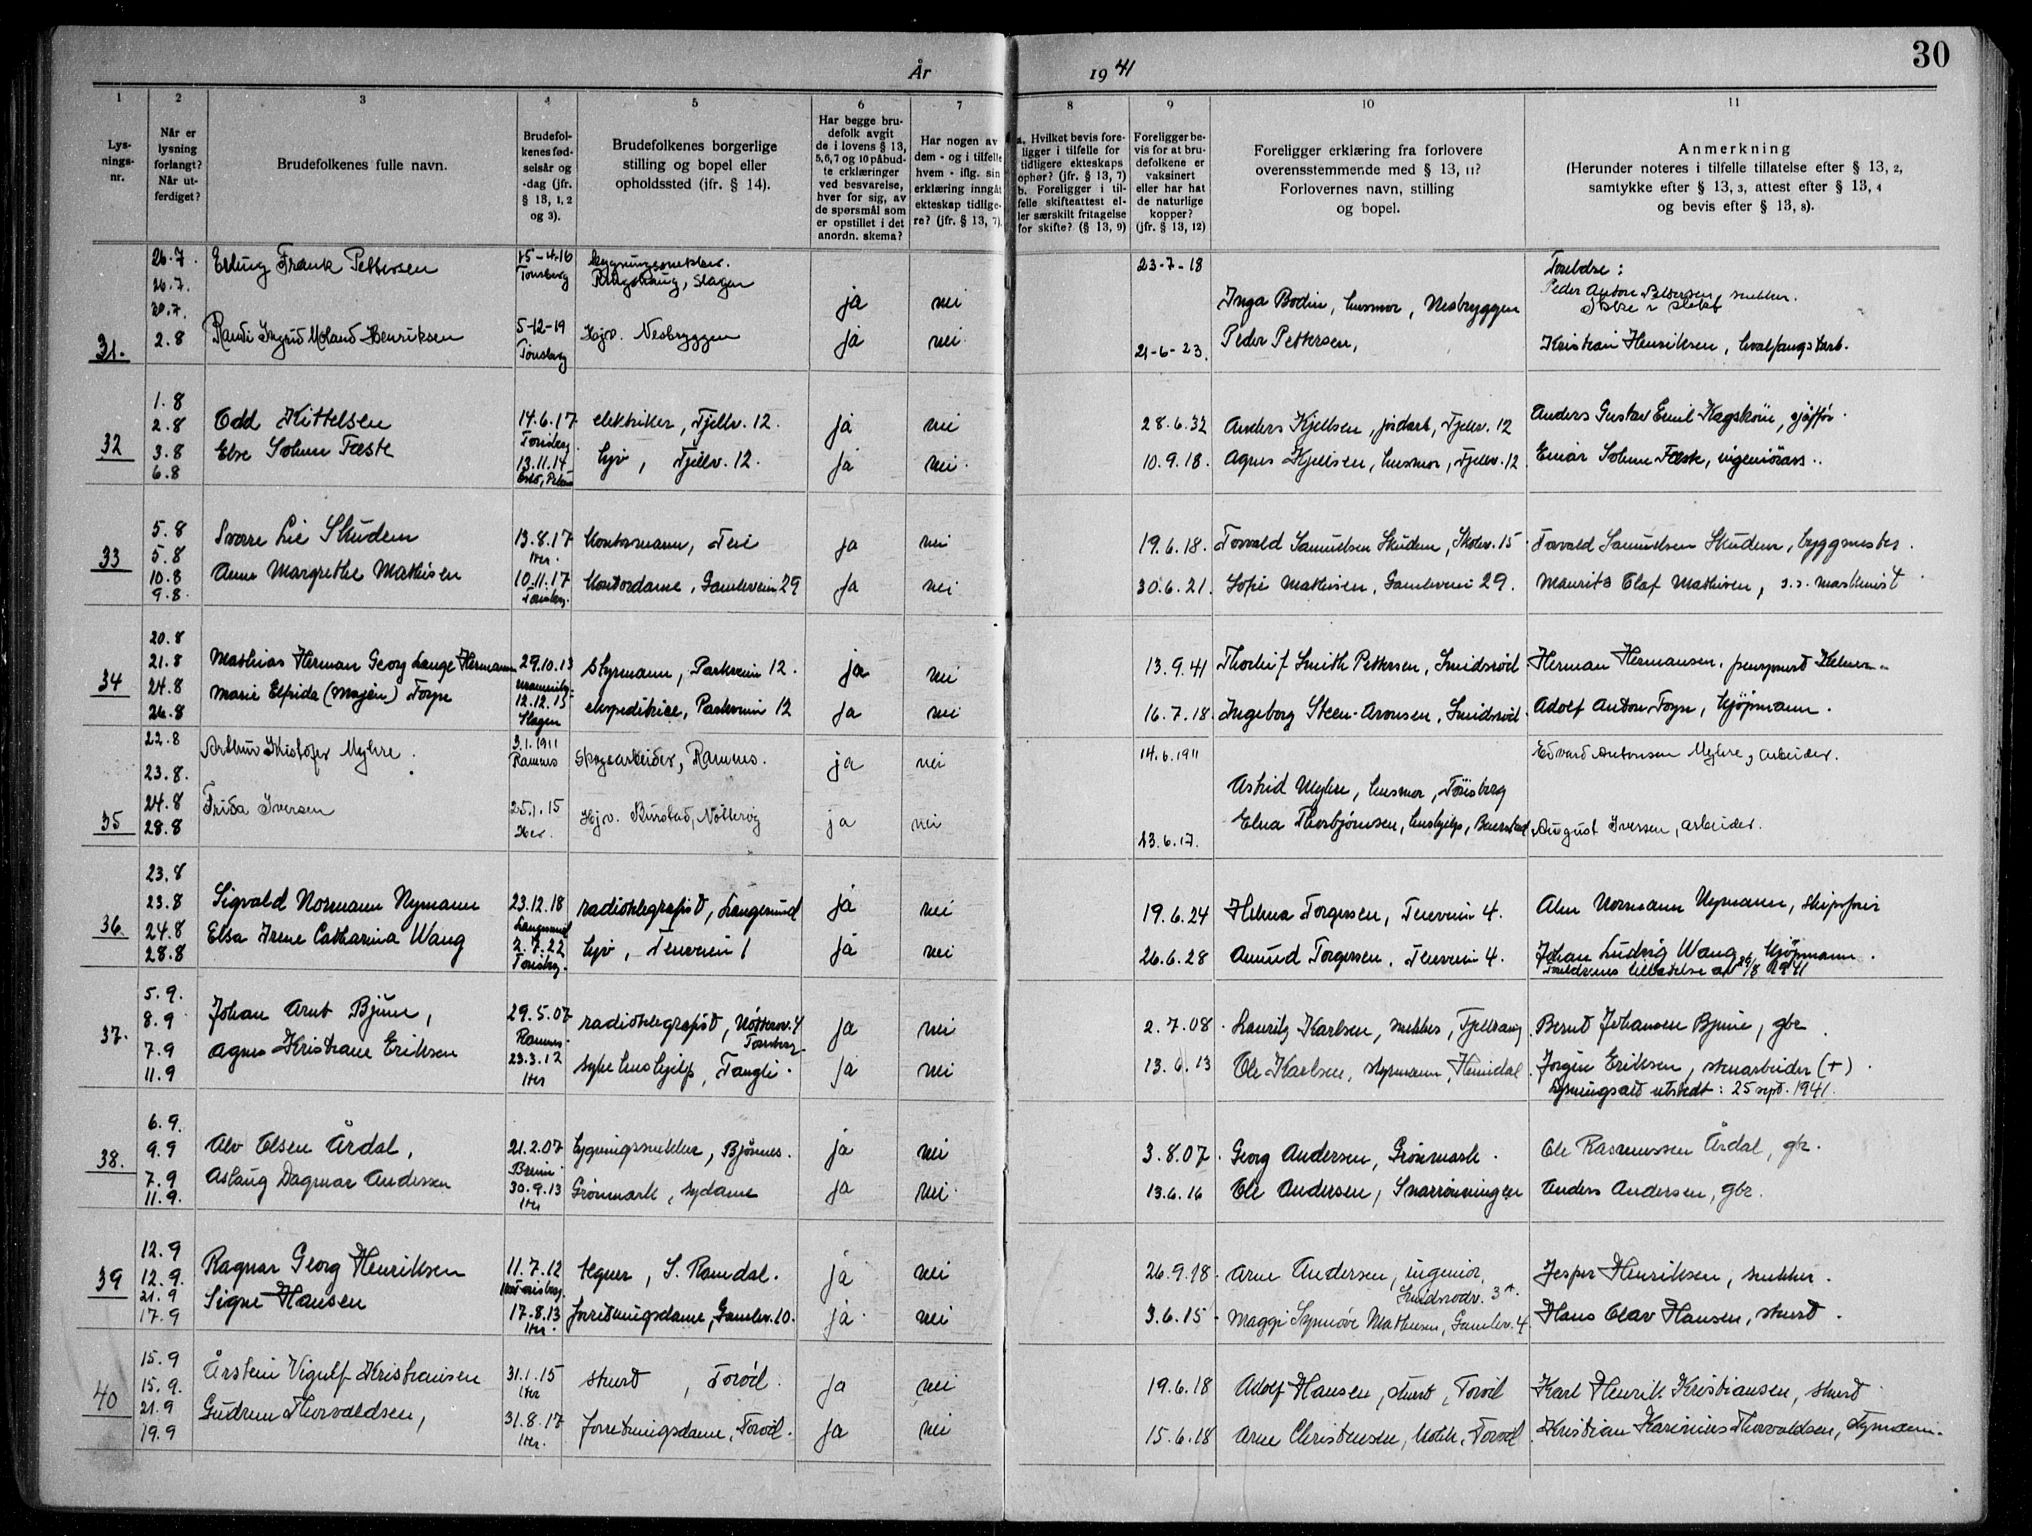 År 1941
30
1 2 3 4 5 6 7 8 9 10 11
Lys-
nings-
nr.
Når er
lysning
forlangt?
Når ut-
ferdiget?
Brudefolkenes fulle navn.
Brudefol-
kenes fød-
selsår og
-dag (jfr.
§ 13, 1, 2
og 3).
Brudefolkenes borgerlige
stilling og bopel eller
opholdssted (jfr. § 14).
Har begge bru-
defolk avgit
de i lovens § 13,
5,6,7 og 10 påbud-
te erklæringer
ved besvarelse,
hver for sig, av
de spørsmål som
er opstillet i det
anordn. skema?
Har nogen av
dem - og i tilfelle
hvem - iflg. sin
erklæring inngåt
ekteskap tidlige-
re? (jfr. § 13, 7).
a. Hvilket bevis fore-
ligger i tilfelle for
tidligere ekteskaps
ophør? (jfr. § 13, 7)
b. Foreligger i til-
felle skifteattest el-
ler særskilt fritagelse
for skifte? (§ 13, 9)
Foreligger be-
vis for at bru-
defolkene er
vaksinert
eller har hat
de naturlige
kopper?
(jfr. § 13, 12)
Foreligger erklæring fra forlovere
overensstemmende med § 13, 11?
Forlovernes navn, stilling
og bopel.
Anmerkning
(Herunder noteres i tilfelle tillatelse efter § 13, 2,
samtykke efter § 13, 3, attest efter § 13, 4
og bevis efter § 13, 8).
26.7. Erling Frank Pettersen 15-4-16 bygningssnekker. 23-7-18
26.7. Tønsberg Slagen ja nei Peder Anton Pettersen, snekker.
30.7. Inga Bodin, husmor, Nesbryggen
31. 2.8 Randi Ingrid Moland Henriksen 5-12-19 Hjv. Nesbryggen ja nei 21-6-23. Peder Pettersen, Kristian Henriksen, hvalfangstarb.
Tønsberg
1.8
2.8 Odd Kittelsen 14.6.17 elektriker, Fjellv. 12. ja nei 28.6.32 Anders Kjellsen, jordarb, Fjellv. 12 Anders Gustav Emil
32 Tønsberg
3.8 Else Solum Fæste 13.11.14 hjv, Fjellv. 12. ja nei 10.9.18. Agnes Kjellsen, husmor, Fjellv. 12 Einar Solum Fæste, ingeniørass.
6.8
5.8 Sverre Lie Skudem 13.8.17 kontormann, Teie ja nei 19.6.18. Torvald Samuelsen Skudem, Skolev. 15 Torvald Samuelsen Skudem, byggmester
33 5.8 Her.
10.8 Anne Margrethe Mathisen 10.11.17 kontordame, Gamleveien 29 ja nei 30.6.21. Sofie Mathisen, Gamleveien 29. Maurits Olaf Mathisen, s.s. maskinist
9.8. Tønsberg.
20.8
21.8 Mathias Herman Georg Lange Hermann 29.10.13 styrmann, Parkveien 12. ja nei 13.9.41 Thorleif Smith Pettersen, Smidsrød Herman Hermansen, pensjonert
34 24.8 Marie Elfrida (Majen) Foyn 12.12.15 ekspeditrice, Parkveien 12 ja nei 16.7.18. Ingeborg Steen-Aronsen, Smidsrød Adolf Anton Foyn, kjøpmann.
26.8 Slagen
22.8 Arthur Kristofer Myhre. 3.1.1911 Skogsarbeider, Ramnes. ja nei 14.6.1911 Edvard Antonsen Myhre, arbeider.
Ramnes
23.8. Astrid Myhre, husmor, Tønsberg
35 24.8 Frida Iversen 25.1.15 Hjv. Burstad, Nøtterøy ja nei 23.6.17. Elna Thorbjørnsen, hushjelp, Burstad August Iversen, arbeider.
28.8 Her.
23.8
23.8 Sigvald Normann Nymann 23.12.18 radiotelegrafist, Langesund ja nei 19.6.24 Helma Torgersen, Teieveien 4. Alm Normann Nymann, skipsfører
36. Langesund
24.8 Elsa Irene Catharina Wang 2.7.22 hjv, Teieveien 1 ja nei 26.6.28 Amund Torgersen, Teieveien 4. Johan Ludvig Wang, kjøpmann.
28.8 Tønsberg. Foreldrenes tillatelse av 26/8 1941
5.9.
8.9 Johan Arnt Bjune, 29.5.07 radiotelegrafist, Nøtterøv. 4 ja nei 2.7.08. Lauritz Karlsen, snekker, Fjellvang Bernt Johansen Bjune, gbr.
37. Ramnes. Tønsberg
7.9 Agnes Kristiane Eriksen 23.3.12 syke hushjelp, Tangli. ja nei 13.6.13 Ole Karlsen, styrmann, Heimdal. Jørgen Eriksen, stenarbeider (+)
11.9 Her Lysningsatt utstedt: 25 sept. 1941.
6.9.
9.9 Alv Olsen Årdal, 21.2.07 bygningssnekker, Bjønnes. ja nei 3.8.07. Georg Andersen, Grønmark. Ole Rasmussen Årdal, gbr.
38.
7.9 Aslaug Dagmar Andersen 30.9.13 Grønmark, sydame ja nei 13.6.16 Ole Andersen, Snarrønningen Anders Andersen, gbr.
11.9. Her
12.9
12.9. Ragnar Georg Henriksen 11.7.12 tegner, S. Ramdal. ja nei 26.9.18. Arne Andersen, ingeniør, Jesper Henriksen, snekker.
39 Smidsrødv. 3
21.9 Signe Hansen 17.8.13 forretningsdame, Gamlev. 10. ja nei 3.6.15. Maggi Synnøve Mathisen, Gamlev. 4 Hans Olav Hansen, stuert.
17.9 Her.
15.9
15.9. Årstein Vigulf Kristiansen 31.1.15 stuert, Torød. ja nei 19.6.18 Adolf Hansen, stuert, Torød Karl Henrik Kristiansen, stuert
40 Her
21.9 Gudrun Thorvaldsen, 31.8.17 forretningsdame, Torød. ja nei 15.6.18 Arne Christensen, Torød. Kristian Karinius Thorvaldsen,
19.9 Her.